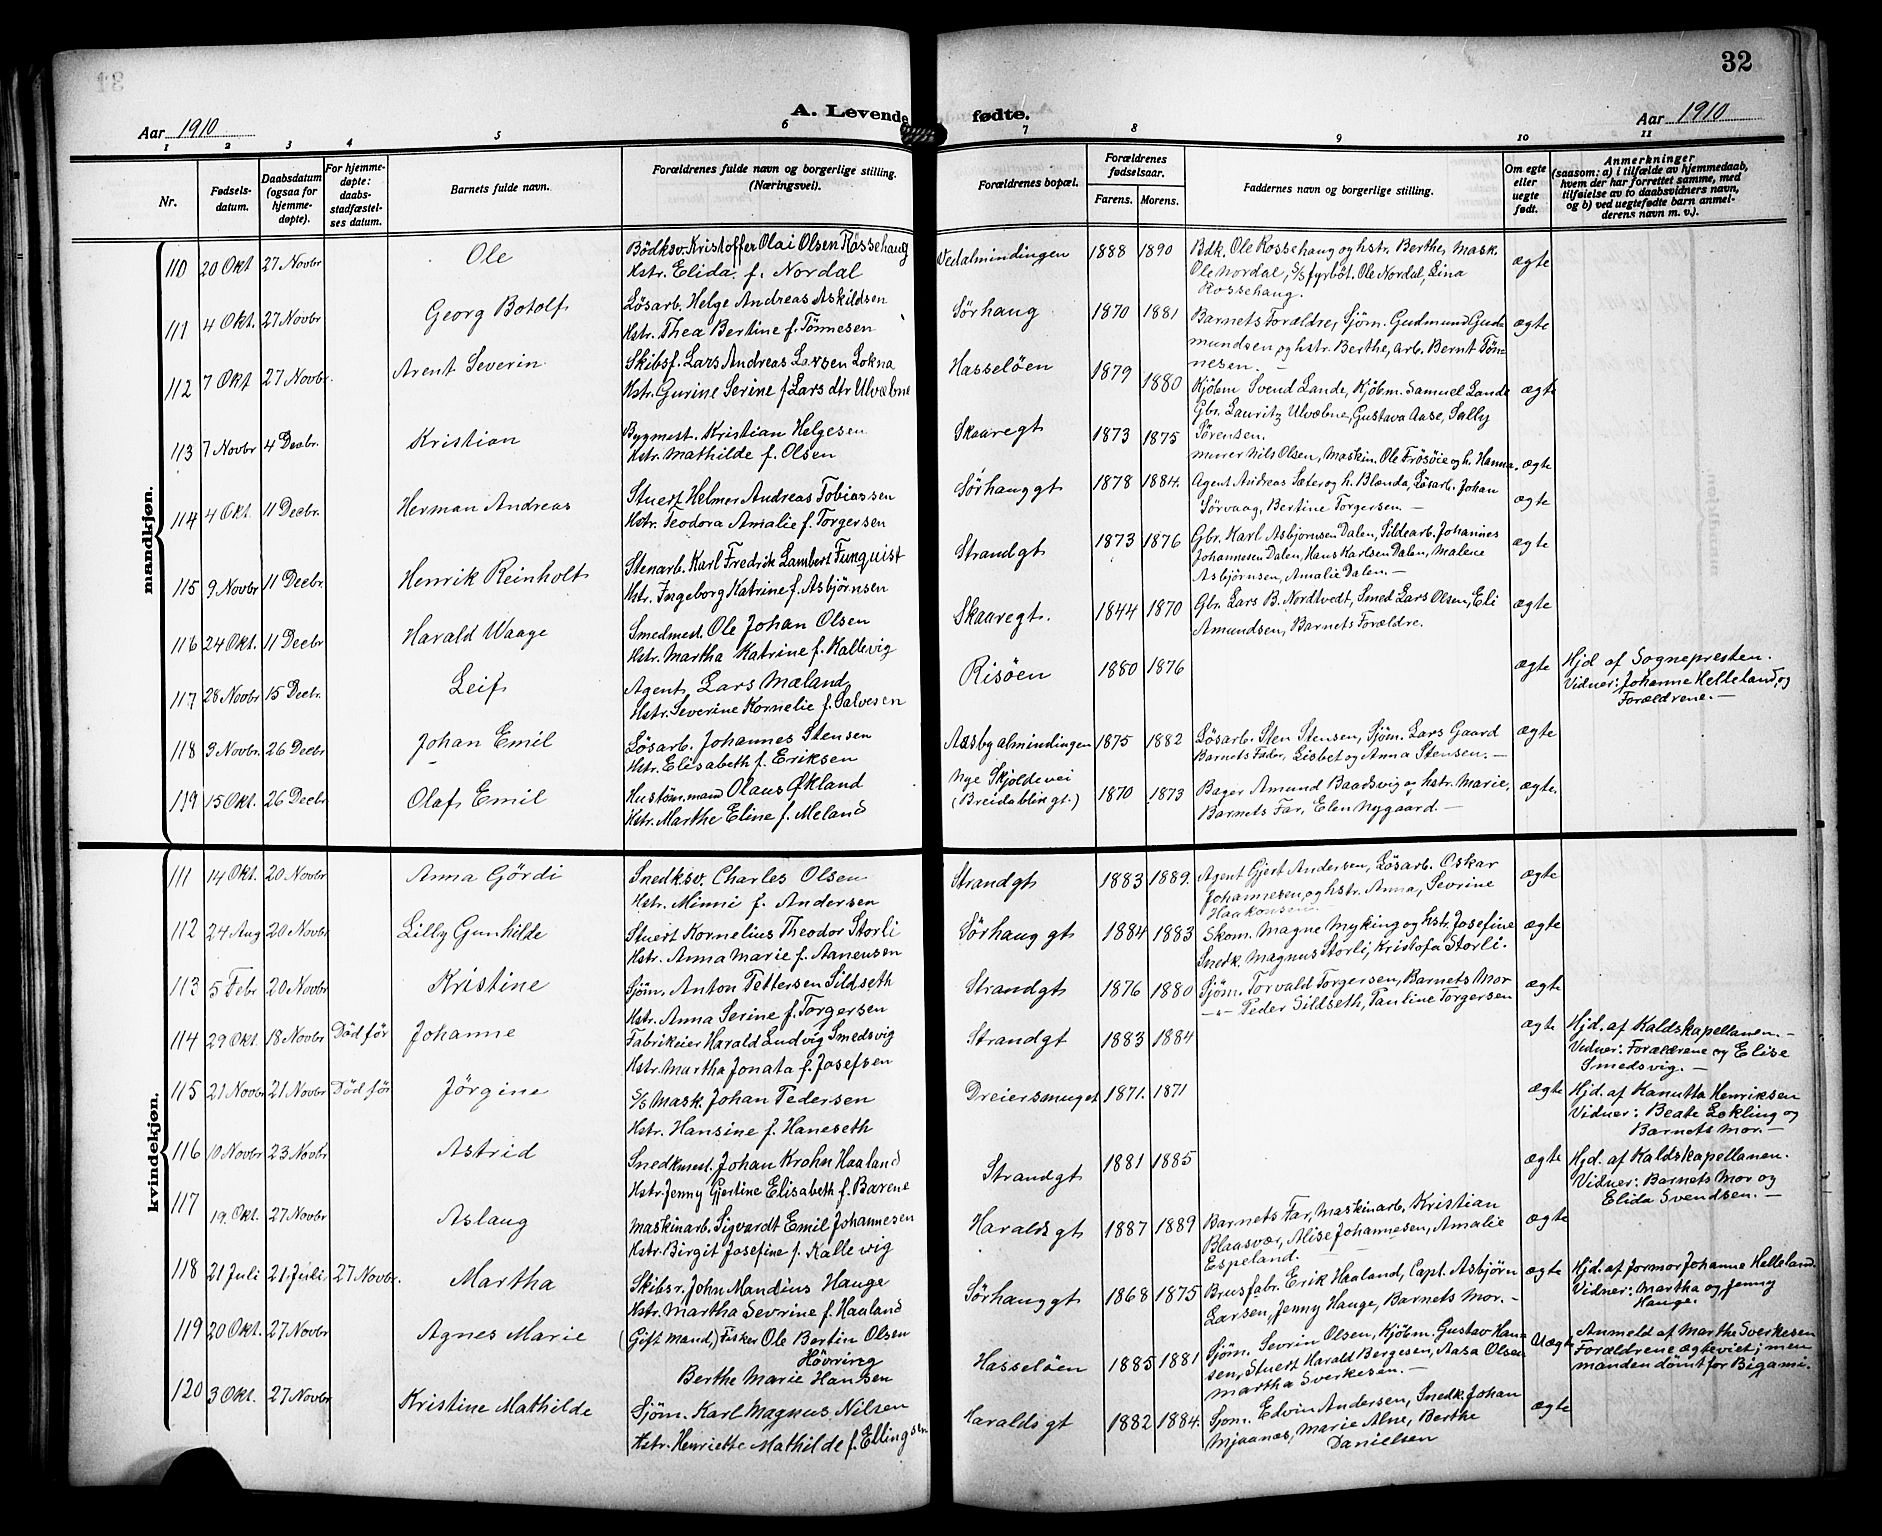 32
A. Levende fødte.
Aar 1910
Aar 1910
1 2 3 4 5 6 7 8 9 10 11
Nr.
Fødsels-
datum.
Daabsdatum
(ogsaa for
hjemme-
døpte).
For hjemme-
døpte:
daabs-
stadfæstel-
ses datum.
Barnets fulde navn.
Forældrenes fulde navn og borgerlige stilling.
(Næringsvei).
Forældrenes bopæl.
Forældrenes
fødselsaar.
Farens. Morens.
Faddernes navn og borgerlige stilling.
Om egte
eller
uegte
født.
Anmerkninger
(saasom: a) i tilfælde av hjemmedaab,
hvem der har forrettet samme, med
tilføielse av to daabsvidners navn,
og b) ved uegtefødte barn anmel-
derens navn m. v.).
mandkjøn.
110 20 Okt 27 Novbr Ole
Bödksv. Kristoffer Olai Olsen Røssehaug
Hstr. Elida f. Nordal
Vedalmindingen 1888 1890
Bdk. Ole Rossehaug og hstr. Berthe, Mask.
Ole Nordal, S/S fyrböt. Ole Nordal, Lina
Rossehaug.
ægte
111 4 Okt. 27 Novbr Georg Botolf
Løsarb. Helge Andreas Askildsen
Hstr. Thea Bertine f. Tönnesen
Sörhaug 1870 1881
Barnets Forældre, Sjöm. Gudmund Guda
mundsen og hstr. Berthe, arb. Bernt Tön-
nesen. —
ægte
112 7 Okt 27 Novbr. Arent Severin
Skibsf. Lars Andreas Larsen Lokna
Hstr. Gurine Serine f. Lars dtr Ulvæbne
Hasselöen 1879 1880
Kjöbm Svend Lande, Kjöbm. Samuel Lande
Gbr. Lauritz Ulvæbne, Gustava Aase, Sally
Sörensen.
ægte
113 7 Novbr 4 Decbr. Kristian
Bygmest. Kristian Helgesen
Hstr. Mathilde f. Olsen
Skaaregt 1873 1875
murer Nils Olsen, Maskin. Ole Frösöie og h. Hanna
ægte
114 4 Okt. 11 Decbr. Herman Andreas
Stuert Helmer Andreas Tobiassen
Hstr. Teodora Amalie f. Torgersen
Sörhauggt 1878 1884.
Agent Andreas Sæter og h. Blenda, Løsarb. Johan
Sörvaag, Bertine Torgersen. —
ægte
115 9 Novbr 11 Decbr Henrik Reinholt
Stenarb. Karl Fredrik Lambert Funquist
Hstr. Ingeborg Katrine f. Asbjørnsen
Strandgt 1873 1876
Gbr. Karl Asbjørnsen Dalen, Sildearb. Johannes
Johannesen Dalen, Hans Karlsen Dalen, Malene
Asbjørnsen, Amalie Dalen. —
ægte
116 24 Okt. 11 Decbr Harald Waage
Smedmest. Ole Johan Olsen
Hstr. Martha Katrine f. Kallevig
Skaaregt. 1844 1870
Gbr. Lars B. Nordtvedt, Smed Lars Olsen, Eli
Amundsen, Barnets Forældre.
ægte
117 28 Novbr 15 Decbr. Leif
Agent Lars Mæland
Hstr. Severine Kornelie f. Salvesen
Risöen 1880 1876
ægte
Hjd af Sognepresten.
Vidner: Johanne Helleland og
Forældrene. —
118 3 Novbr. 26 Decbr Johan Emil
Løsarb. Johannes Stensen
Hstr. Elisabeth f. Eriksen
Aasbyalmindingen 1875 1882
Løsarb. Sten Stensen, Sjöm. Lars Gaard
Barnets Fader, Lisbet og Anna Stensen. —
ægte
119 15 Okt. 26 Decbr Olaf Emil
Hustöm.mand Olaus Økland
Hstr. Marthe Eline f. Meland
Nye Skjoldevei
(Breidablik gt.) 1870 1873
Bager Amund Baadsvig og hstr. Marie,
Barnets Far, Elen Nygaard. —
ægte.
kvindekjøn.
111 14 Okt. 20 Novbr Anna Gördi
Snedksv. Charles Olsen
Hstr. Minni f. Andersen
Strandgt 1883 1889.
Agent Gjert Andersen, Løsarb. Oskar
Johannesen og hstr. Anna, Sevrine
Haakonsen
ægte
112 24 Aug 20 Novbr Lilly Gunhilde
Stuert Kornelius Theodor Storli
Hstr. Anna Marie f. Aanensen
Sörhaug gt 1884 1883
Skom. Magne Myking og hstr. Josefine
Snedk. Magnus Storli, Kristofa Storli.
ægte
113 5 Febr 20 Novbr Kristine
Sjöm. Anton Pettersen Sildseth
Hstr. Anna Serine f. Torgersen
Strandgt 1876 1880
Sjöm. Torvald Torgersen, Barnets Mor
—"— Peder Sildseth, Pauline Torgersen
ægte
114 29 Okt. 18 Novbr Död för Johanne
Fabrikeier Harald Ludvig Smedsvig
Hstr. Martha Jonata f. Josefsen
Strandgt 1883 1884
ægte
Hjd. af Kaldskapellanen. —
Vidner: Forældrene og Elise
Smedsvig. —
115 21 Novbr 21 Novbr Död för Jörgine
S/S Mask. Johan Pedersen
Hstr. Hansine f. Haneseth
Dreiersmuget 1871. 1871
ægte
Hjd. af Kanutta Henriksen
Vidner: Beate Lokling og
Barnets Mor. —
116 10 Novbr 23 Novbr Astrid
Snedkmest. Johan Krohn Haaland
Hstr. Jenny Gjertine Elisabeth f. Barene
Strandgt 1881 1885
ægte
Hjd. af Kaldskapellanen.
Vidner: Barnets Mor og
Elida Svendsen. —
117 19. Okt. 27 Novbr Aslaug
Maskinarb. Sigvardt Emil Johannesen
Hstr. Birgit Josefine f. Kallevig
Haralds gt 1887 1889
Barnets Far, Maskinarb. Kristian
Blaasvær, Alise Johannesen, Amalie
Espeland.
ægte
118 21 Juli 21 Juli 27 Novbr. Martha
Skibsr. John Mandius Hauge
Hstr. Martha Sevrine f. Haaland
Sörhauggt 1868 1875
Brusfabr. Erik Haaland, Capt. Asbjörn
Larsen, Jenny Hauge, Barnets Mor. —
ægte
Hjd. af Jormor Johanne Helleland.
Vidner: Martha og Jenny
Hauge.
119 20 Okt. 27 Novbr Agnes Marie
(Gift mand,) Fisker Ole Bertin Olsen
Hövring
Berthe Marie Hansen
Hasselöen 1885 1881
Sjöm. Sevrin Olsen, Kjöbm. Gustav Han-
sen, Stuert Harald Bergesen, Aasa Olsen
Martha Sverkesen. —
Uægte
Anmeld af Marthe Sverkesen
Forældrene ægteviet; men
manden dömt for Bigami.
120 3 Okt. 27 Novbr Kristine Mathilde
Sjöm. Karl Magnus Nilsen
Hstr. Henriette Mathilde f. Ellingsen
Haralds gt 1882 1884.
Sjöm. Edvin Andersen, Snedk. Johan
Mjaanes, Marie Alne, Berthe
Danielsen
ægte